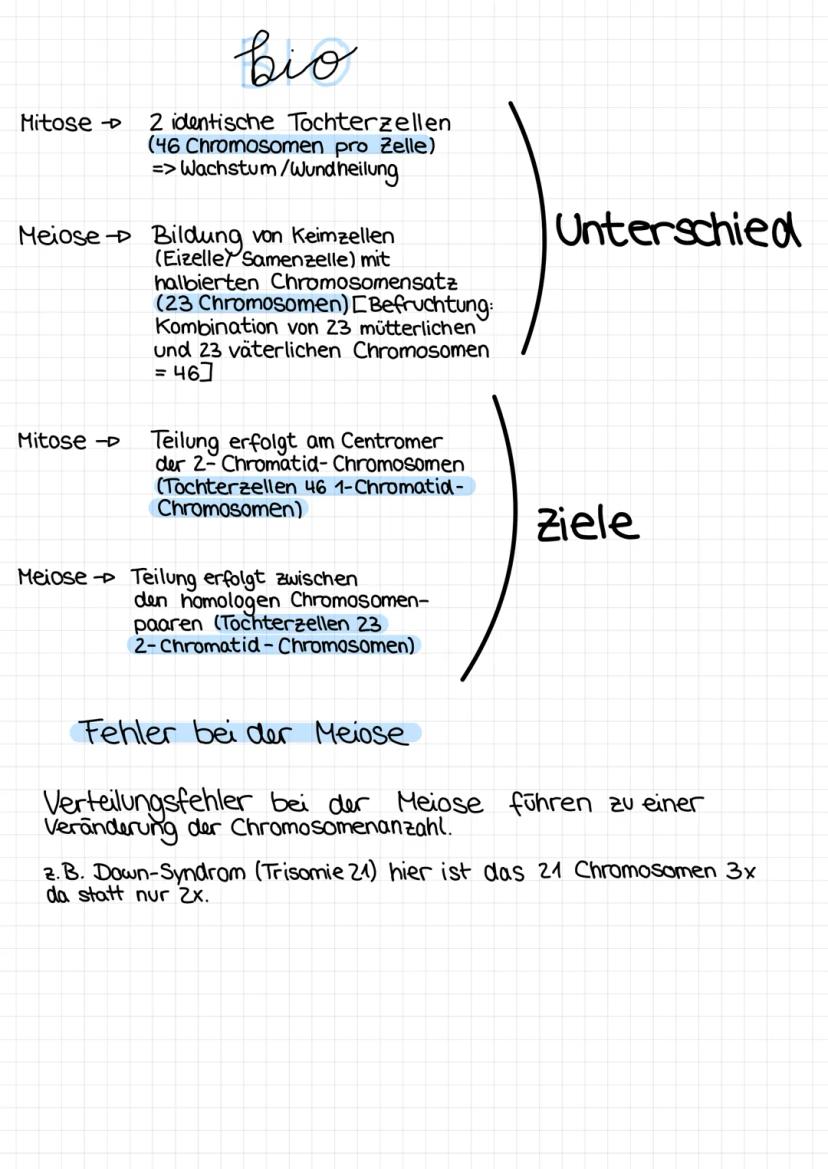 bio
Mitose → 2 identische Tochterzellen
(46 Chromosomen pro Zelle)
=> Wachstum/Wundheilung
Unterschied
Meiose → Bildung von Keimzellen
(Eizelle/Samenzelle) mit
halbierten Chromosomensatz
(23 Chromosomen) [Befruchtung:
Kombination von 23 mütterlichen
und 23 väterlichen Chromosomen
= 46]
Mitose → Teilung erfolgt am Centromer
der 2-Chromatid-Chromosomen
(Tochterzellen 46 1-Chromatid-
Chromosomen)
Ziele
Meiose → Teilung erfolgt zwischen
den homologen Chromosomen-
paaren (Tochterzellen 23
2-Chromatid-Chromosomen)
Fehler bei der Meiose
Verteilungsfehler bei der Meiose führen zu einer
Veränderung der Chromosomenanzahl.
z.B. Down-Syndrom (Trisomie 21) hier ist das 21 Chromosomen 3x
da statt nur 2x.